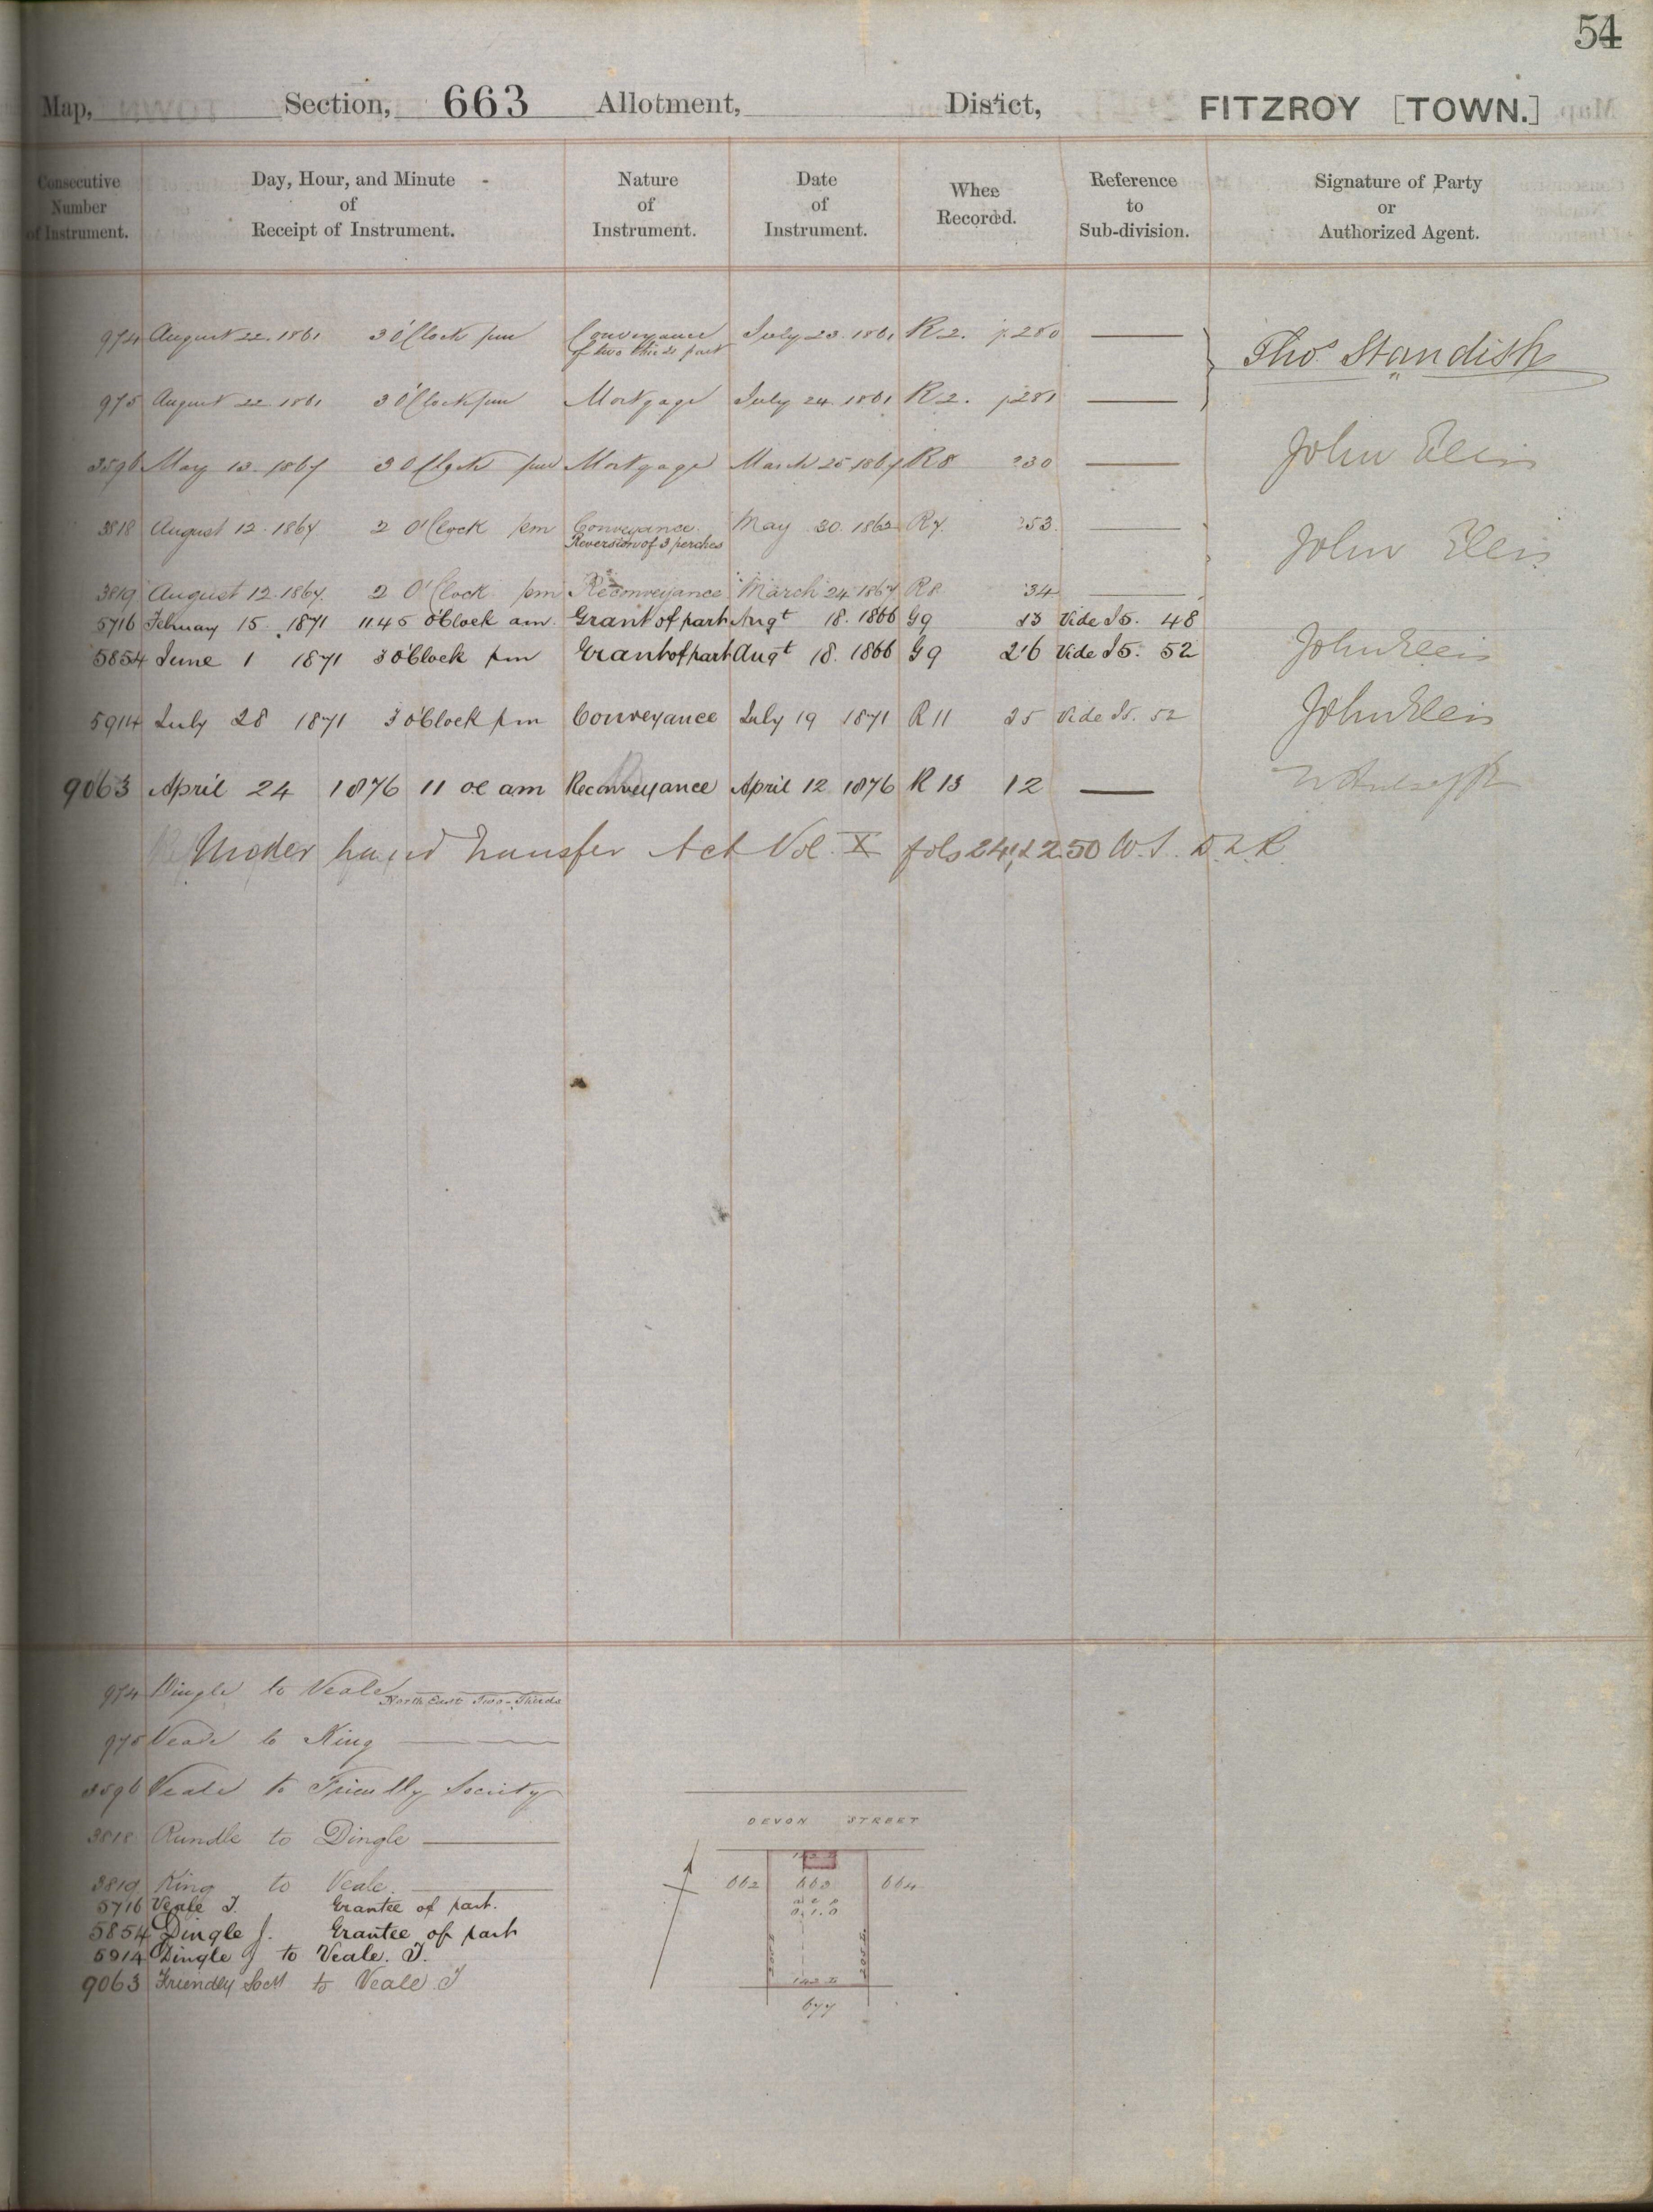 54
Map, Section, 663 Allotment, District, FITZROY [TOWN.]
Consecutive Number of Instrument. Day, Hour, and Minute of Receipt of Instrument. Nature of Instrument. Date of Instrument. Whee Recorded. Reference to Sub-division. Signature of Party or Authorized Agent.
974 August 22. 1861 3 O'Clock pm Conveyance of two thirds part July 23. 1861 R 2. p 280 Thos. Standish
975 August 22. 1861 3 O'Clock pm Mortgage July 24. 1861 R 2. p 281
3596 May 13. 1867 3 O'Clock pm Mortgage March 25 1867 R 8 230 John Ellis
3818 August 12. 1867 2 O'Clock pm Conveyance Reversion of 3 perches May 20. 1862 R 7. 253. John Ellis
3819 August 12. 1867. 2 O'Clock pm Reconveyance March 24 1867 R 8 34
5716 February 15. 1871 11.45 o'Clock am. Grant of part Augt 18. 1866 G 9 13 Vide I 5. 48
5854 June 1 1871 3 o'Clock pm Grant of part Augt 18. 1866 G 9 26 Vide I 5. 52 John Ellis
5914 July 28 1871 3 o'Clock pm Conveyance July 19 1871 R 11 25 Vide I 5. 52 John Ellis
9063 April 24 1876 11 oc am Reconveyance April 12 1876 R 13 12
Under Land Transfer Act Vol. X fols 249 & 250 W.S. D.L.R.
974 Dingle to Veale North East Two-Thirds
975 Veale to King
3596 Veale to Friendly Society
3818 Rundle to Dingle
3819 King to Veale.
5716 Veale J. Grantee of part.
5854 Dingle J. Grantee of part
5914 Dingle J to Veale. J.
9063 Friendly Socy to Veale J
DEVON STREET
662 663 664
0. 1. 0
677